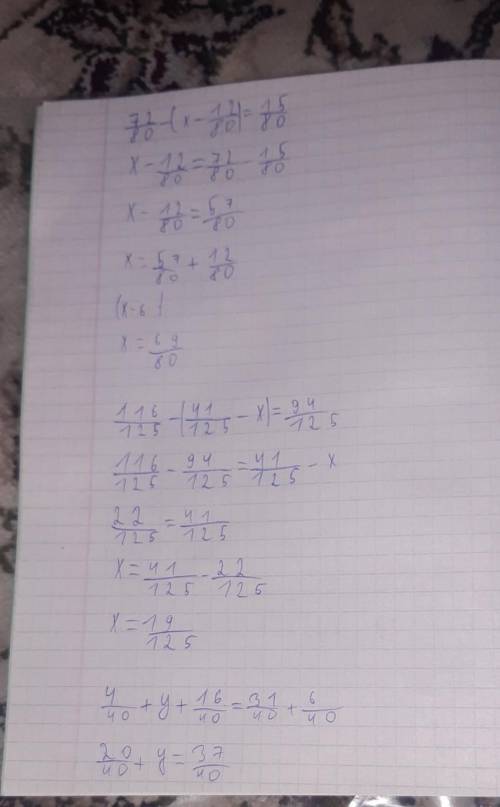 72/80 - (x - 12/80) = 15/80
x - 12/80 = 72/80 - 15/80
x - 12/80 = 57/80
x = 57/80 + 12/80
(x - 6 )
x = 69/80
116/125 - (41/125 - x) = 94/125
116/125 - 94/125 = 41/125 - x
22/125 = 41/125
x = 41/125 - 22/125
x = 19/125
4/40 + y + 16/40 = 31/40 + 6/40
20/40 + y = 37/40